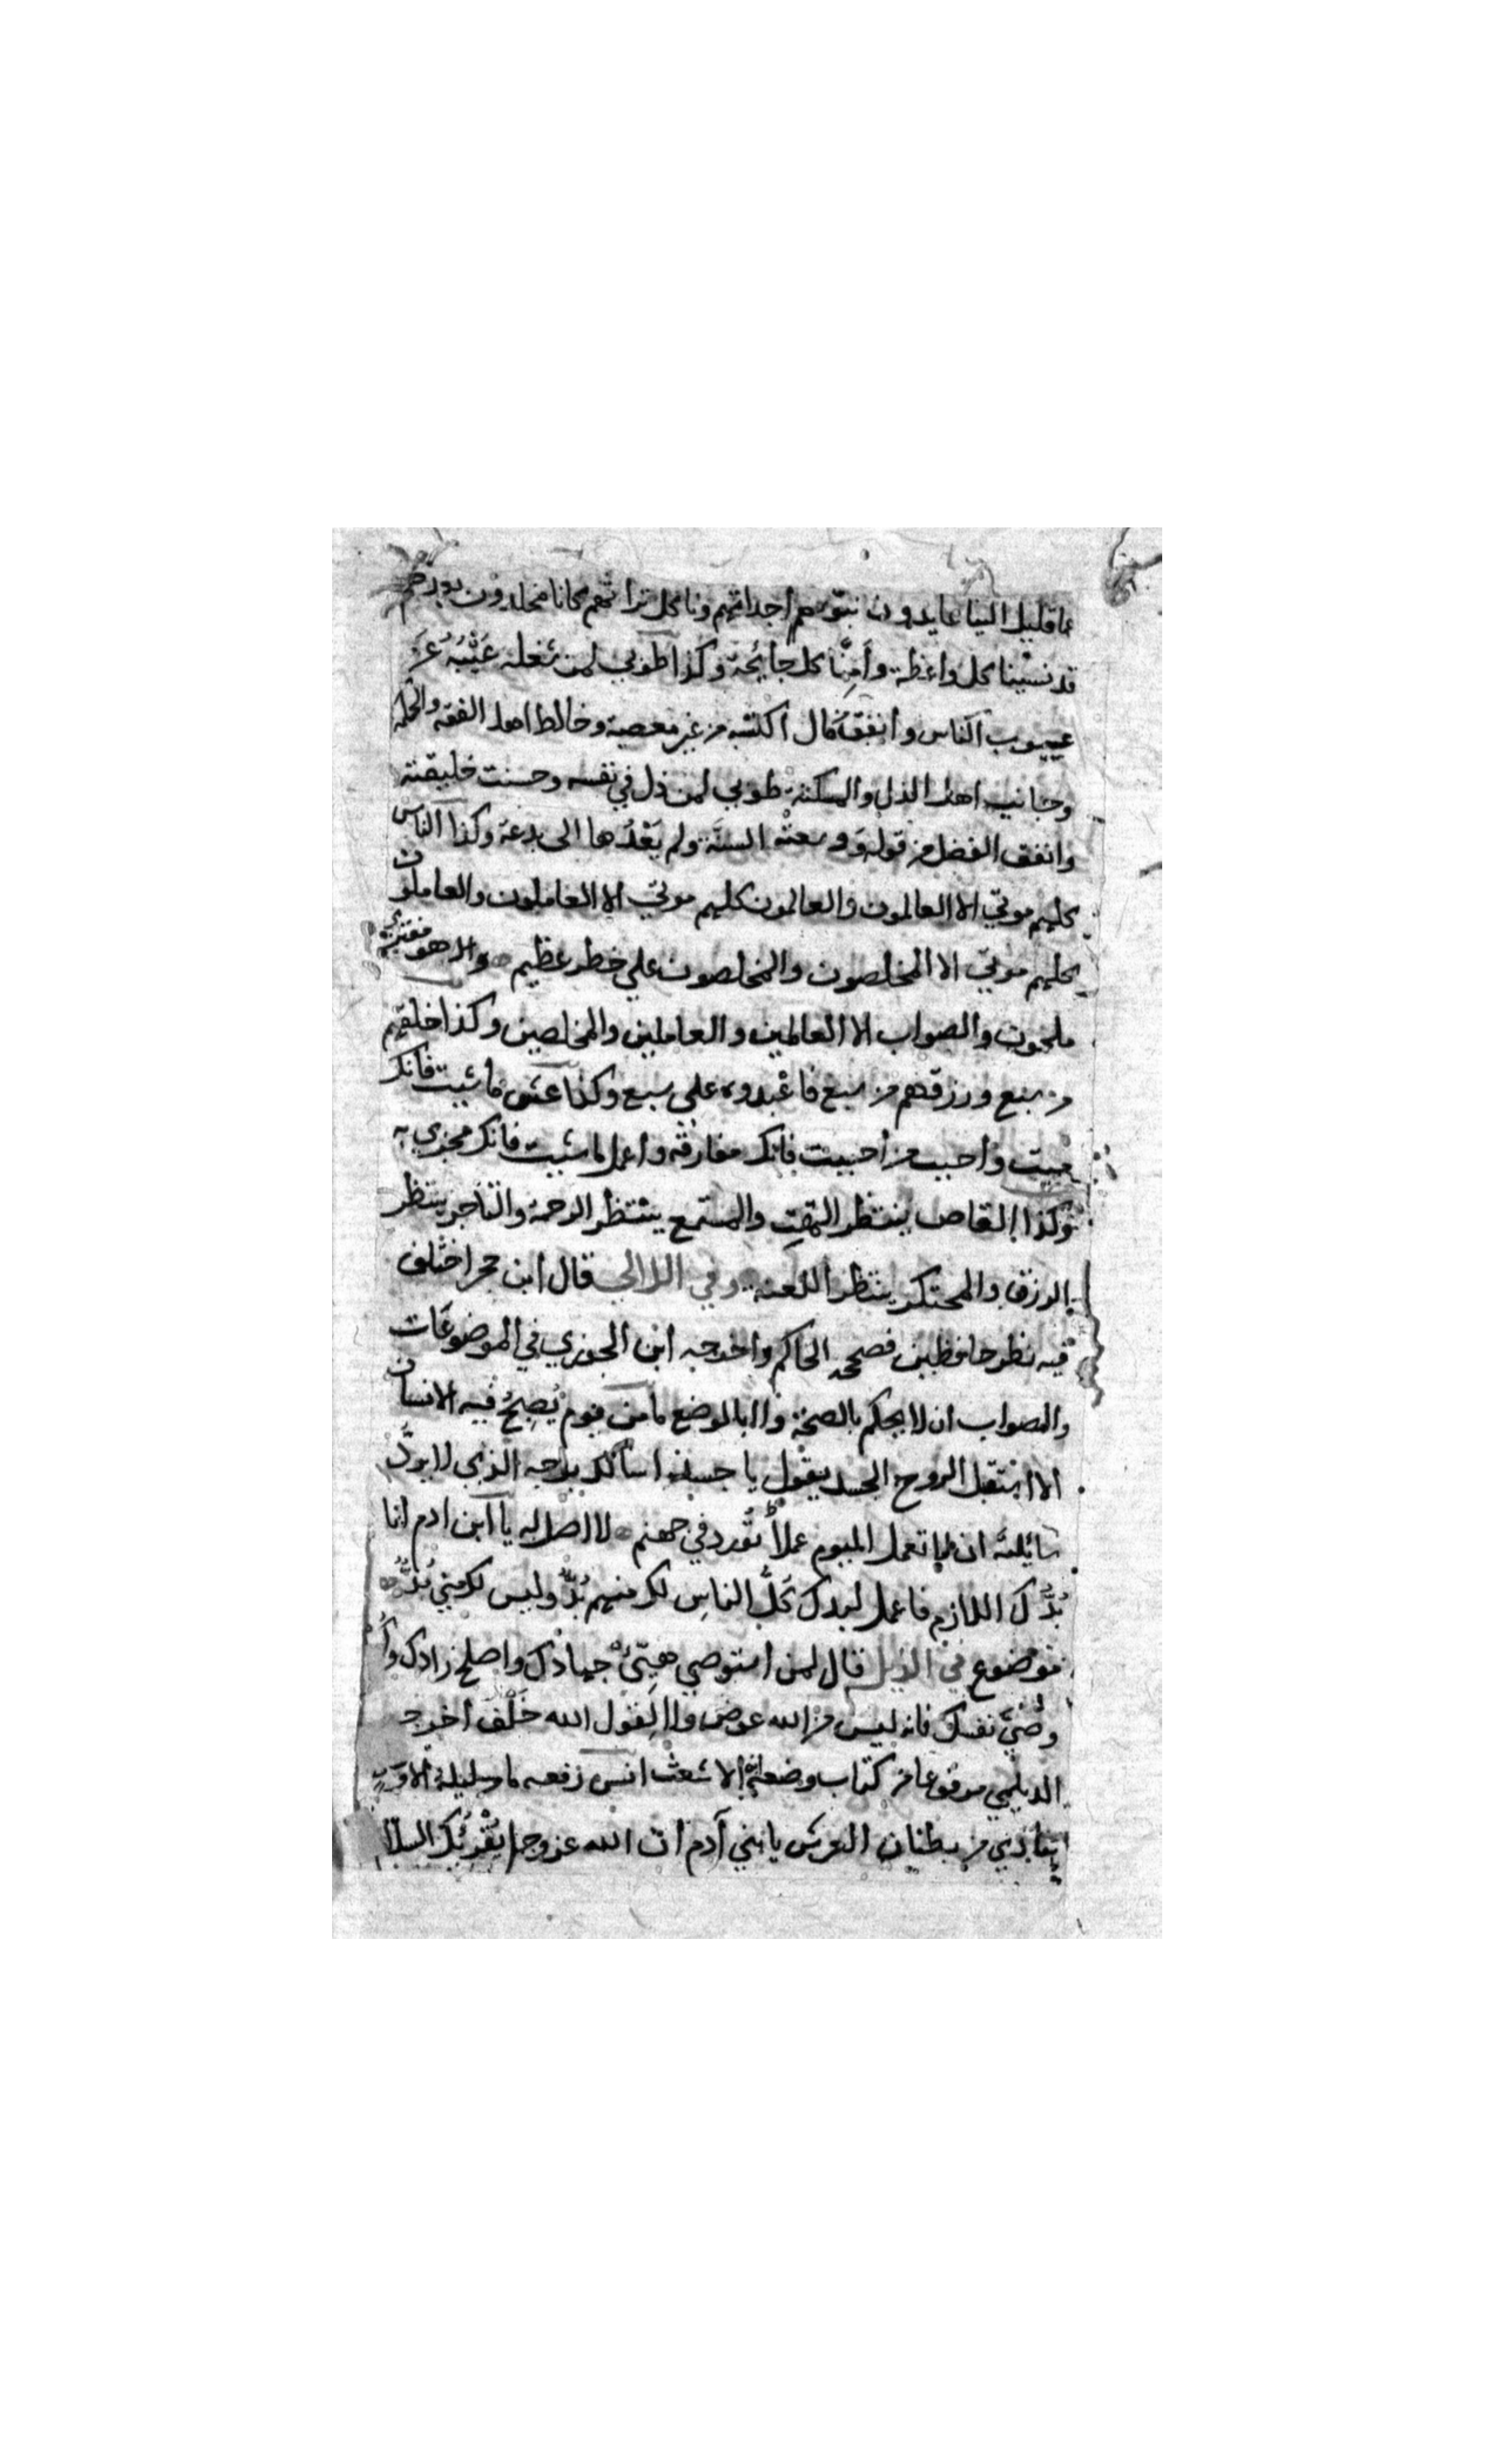 عما قليل الينا عايدون نبوئهم أجداثهم وناكل تراثهم كانا مخلدون بعدهم
قد نسينا كل واعظة وأمِنَّا كل جايحة وكذا طوبى لمن شغله عَيْبُهُ عن
عيوب الناس وأنفق مال اكتسبه من غير معصية وخالط اهل الفقه والحكمة
وجانب اهل الذل والمسكنة طوبى لمن ذل في نفسه وحسنت خليقته
وانفق الفضل من قوله ووسعته السنة ولم يَعْدُها الى بدعة وكذا الناس
كلهم موتى الا العالمون والعالمون كلهم موتى الا العاملون والعاملون
كلهم موتى الا المخلصون والمخلصون على خطر عظيم هو مفترى
ملحون والصواب الا العالمين والعاملين والمخلصين وكذا خلقهم
من سبع ورزقهم من سبع فاعبدوه على سبع وكذا عش ما شيت فانك
ميت واحبب من احببت فانك مفارقه واعمل ما شيت فانك مجزي به
وكذا القاص ينتظر المقت والمستمع ينتظر الرحمة والتاجر ينتظر
الرزق والمحتكر ينتظر اللعنة وفي اللالي قال ابن حجر اختلف
فيه نظر حافظين فصححه الحاكم واخرجه ابن الجوزي في الموضوعات
والصواب ان لا يحكم بالصحة ولا بالوضع ما من يوم يُصبحُ فيه الانسان
الا انتقل الروح الجسد يقول يا جسد اسألك بوجه الذي لا يردّ
سائله ان لا تعمل اليوم عملاً تورد في جهنم لا اصل له يا ابن ادم انا
بُدُّك اللازم فاعمل لبدك كلُّ الناسِ لك منهم بُدٌّ وليس لك مني بُدٌّ
موضوع في الذيل قال لمن استوصى هَيِّئْ جهازك واصلح زادك وكُن
وصيَّ نفسك فانه ليس من الله عوض ولا لِقول الله خَلْف أخرجه
الديلمي مرفوعا من كتاب وضعه الاشعث انس رفعه ما من ليلة الا
ينادي من بطنان العرش يا بني آدم ان الله عز وجل يُقْرِئُك السلا